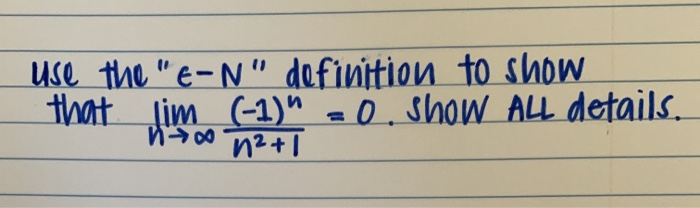 use the "ϵ-N" definition to show
that lim n→∞ (-1)^n / n²+1 = 0. Show ALL details.